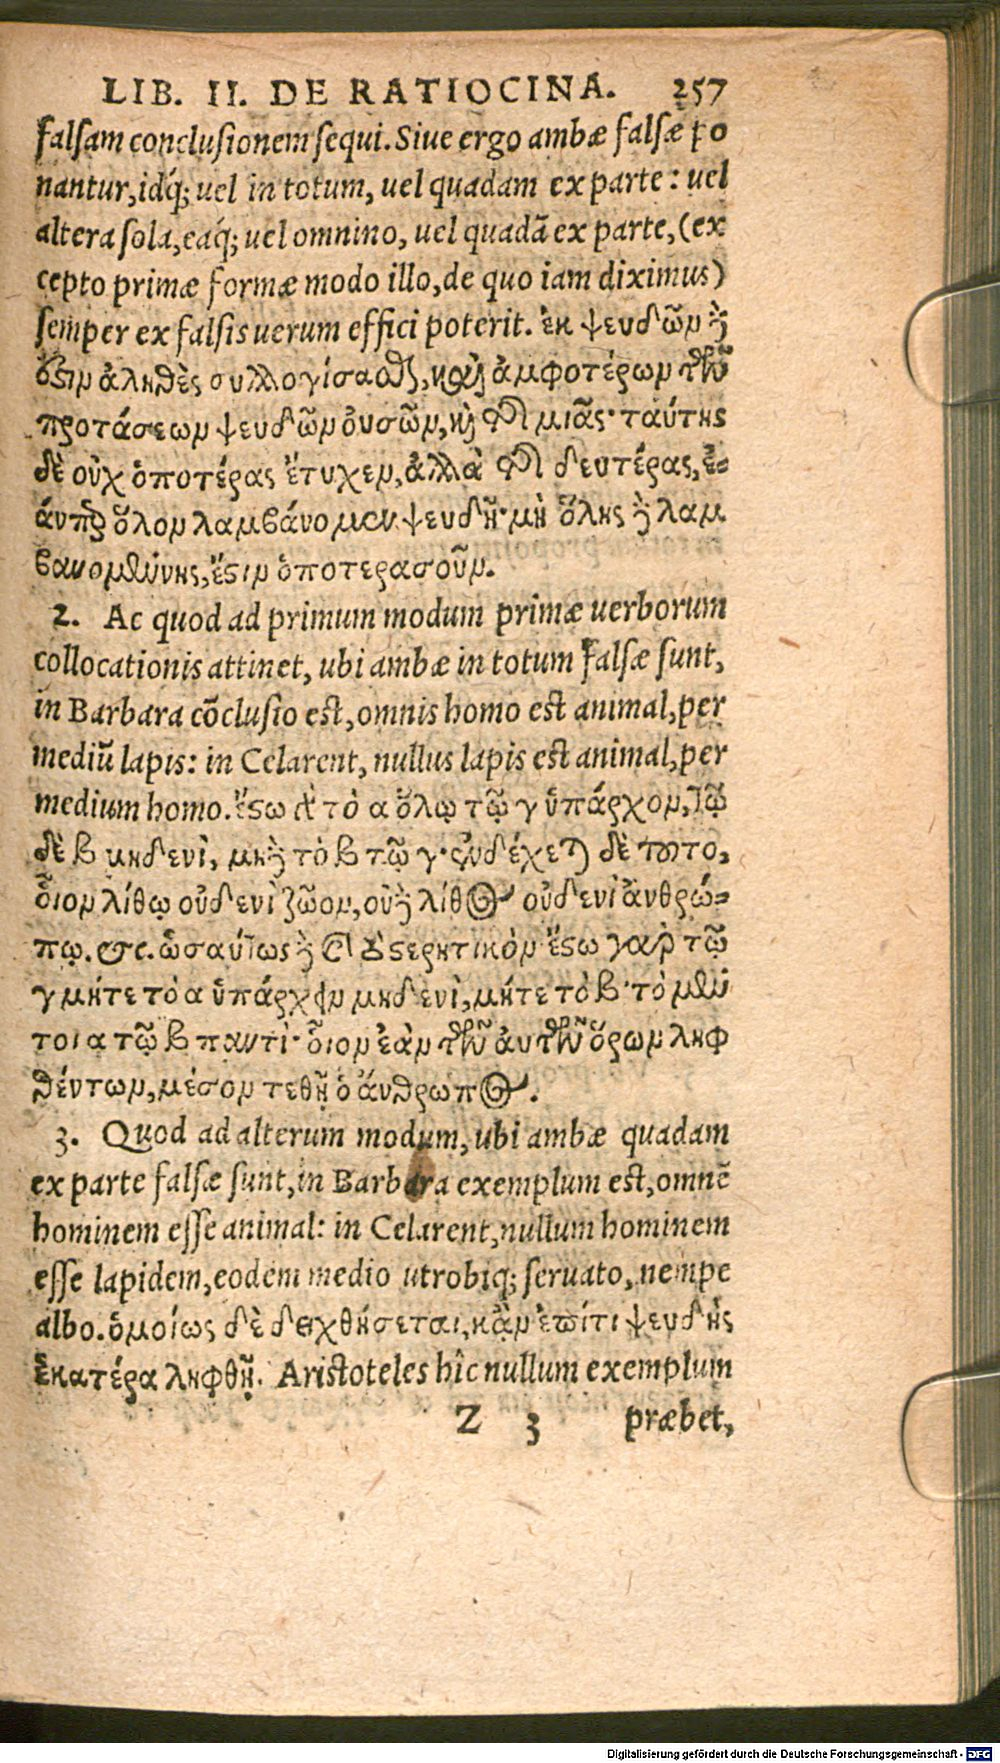 LIB. II. DE RATIOCINA. 257
falsam conclusionem sequi. Siue ergo ambæ falsæ po
nantur, idq́; uel in totum, uel quadam ex parte: uel
altera sola, eaq́; uel omnino, uel quadã ex parte, (ex
cepto primæ formæ modo illo, de quo iam diximus)
semper ex falsis uerum effici poterit. ἐκ ψευδῶν δ᾽
ἔστιν ἀληθὲς συλλογίσασθαι, καὶ ἀμφοτέρων τῶν
προτάσεων ψευδῶν οὐσῶν, καὶ τῆς μιᾶς· ταύτης
δὲ οὐχ ὁποτέρας ἔτυχεν, ἀλλὰ τῆς δευτέρας, ἐ-
άνπερ ὅλον λαμβάνομεν ψευδῆ· μὴ ὅλης δὲ λαμ
βανομένης, ἔστιν ὁποτερασοῦν.
2. Ac quod ad primum modum primæ uerborum
collocationis attinet, ubi ambæ in totum falsæ sunt,
in Barbara cõclusio est, omnis homo est animal, per
mediũ lapis: in Celarent, nullus lapis est animal, per
medium homo. ἔστω γὰρ τὸ α ὅλῳ τῷ γ ὑπάρχον, τῷ
δὲ β μηδενὶ, μηδὲ τὸ β τῷ γ· ἐνδέχεται δὲ τοῦτο,
οἷον λίθῳ οὐδενὶ ζῶον, οὐδὲ λίθος οὐδενὶ ἀνθρώ-
πῳ. &c. ὡσαύτως δὲ καὶ στερητικόν· ἔστω γὰρ τῷ
γ μήτε τὸ α ὑπάρχειν μηδενὶ, μήτε τὸ β· τὸ μέν
τοι α τῷ β παντί· οἷον ἐὰν τῶν αὐτῶν ὅρων ληφ
θέντων, μέσον τεθῇ ὁ ἄνθρωπος.
3. Quod ad alterum modum, ubi ambæ quadam
ex parte falsæ sunt, in Barbara exemplum est, omnẽ
hominem esse animal: in Celarent, nullum hominem
esse lapidem, eodem medio utrobiq; seruato, nempe
albo. ὁμοίως δὲ δειχθήσεται, κἂν ἐπίτι ψευδὴς
ἑκατέρα ληφθῇ. Aristoteles hîc nullum exemplum
Z 3 præbet,
Digitalisierung gefördert durch die Deutsche Forschungsgemeinschaft - DFG